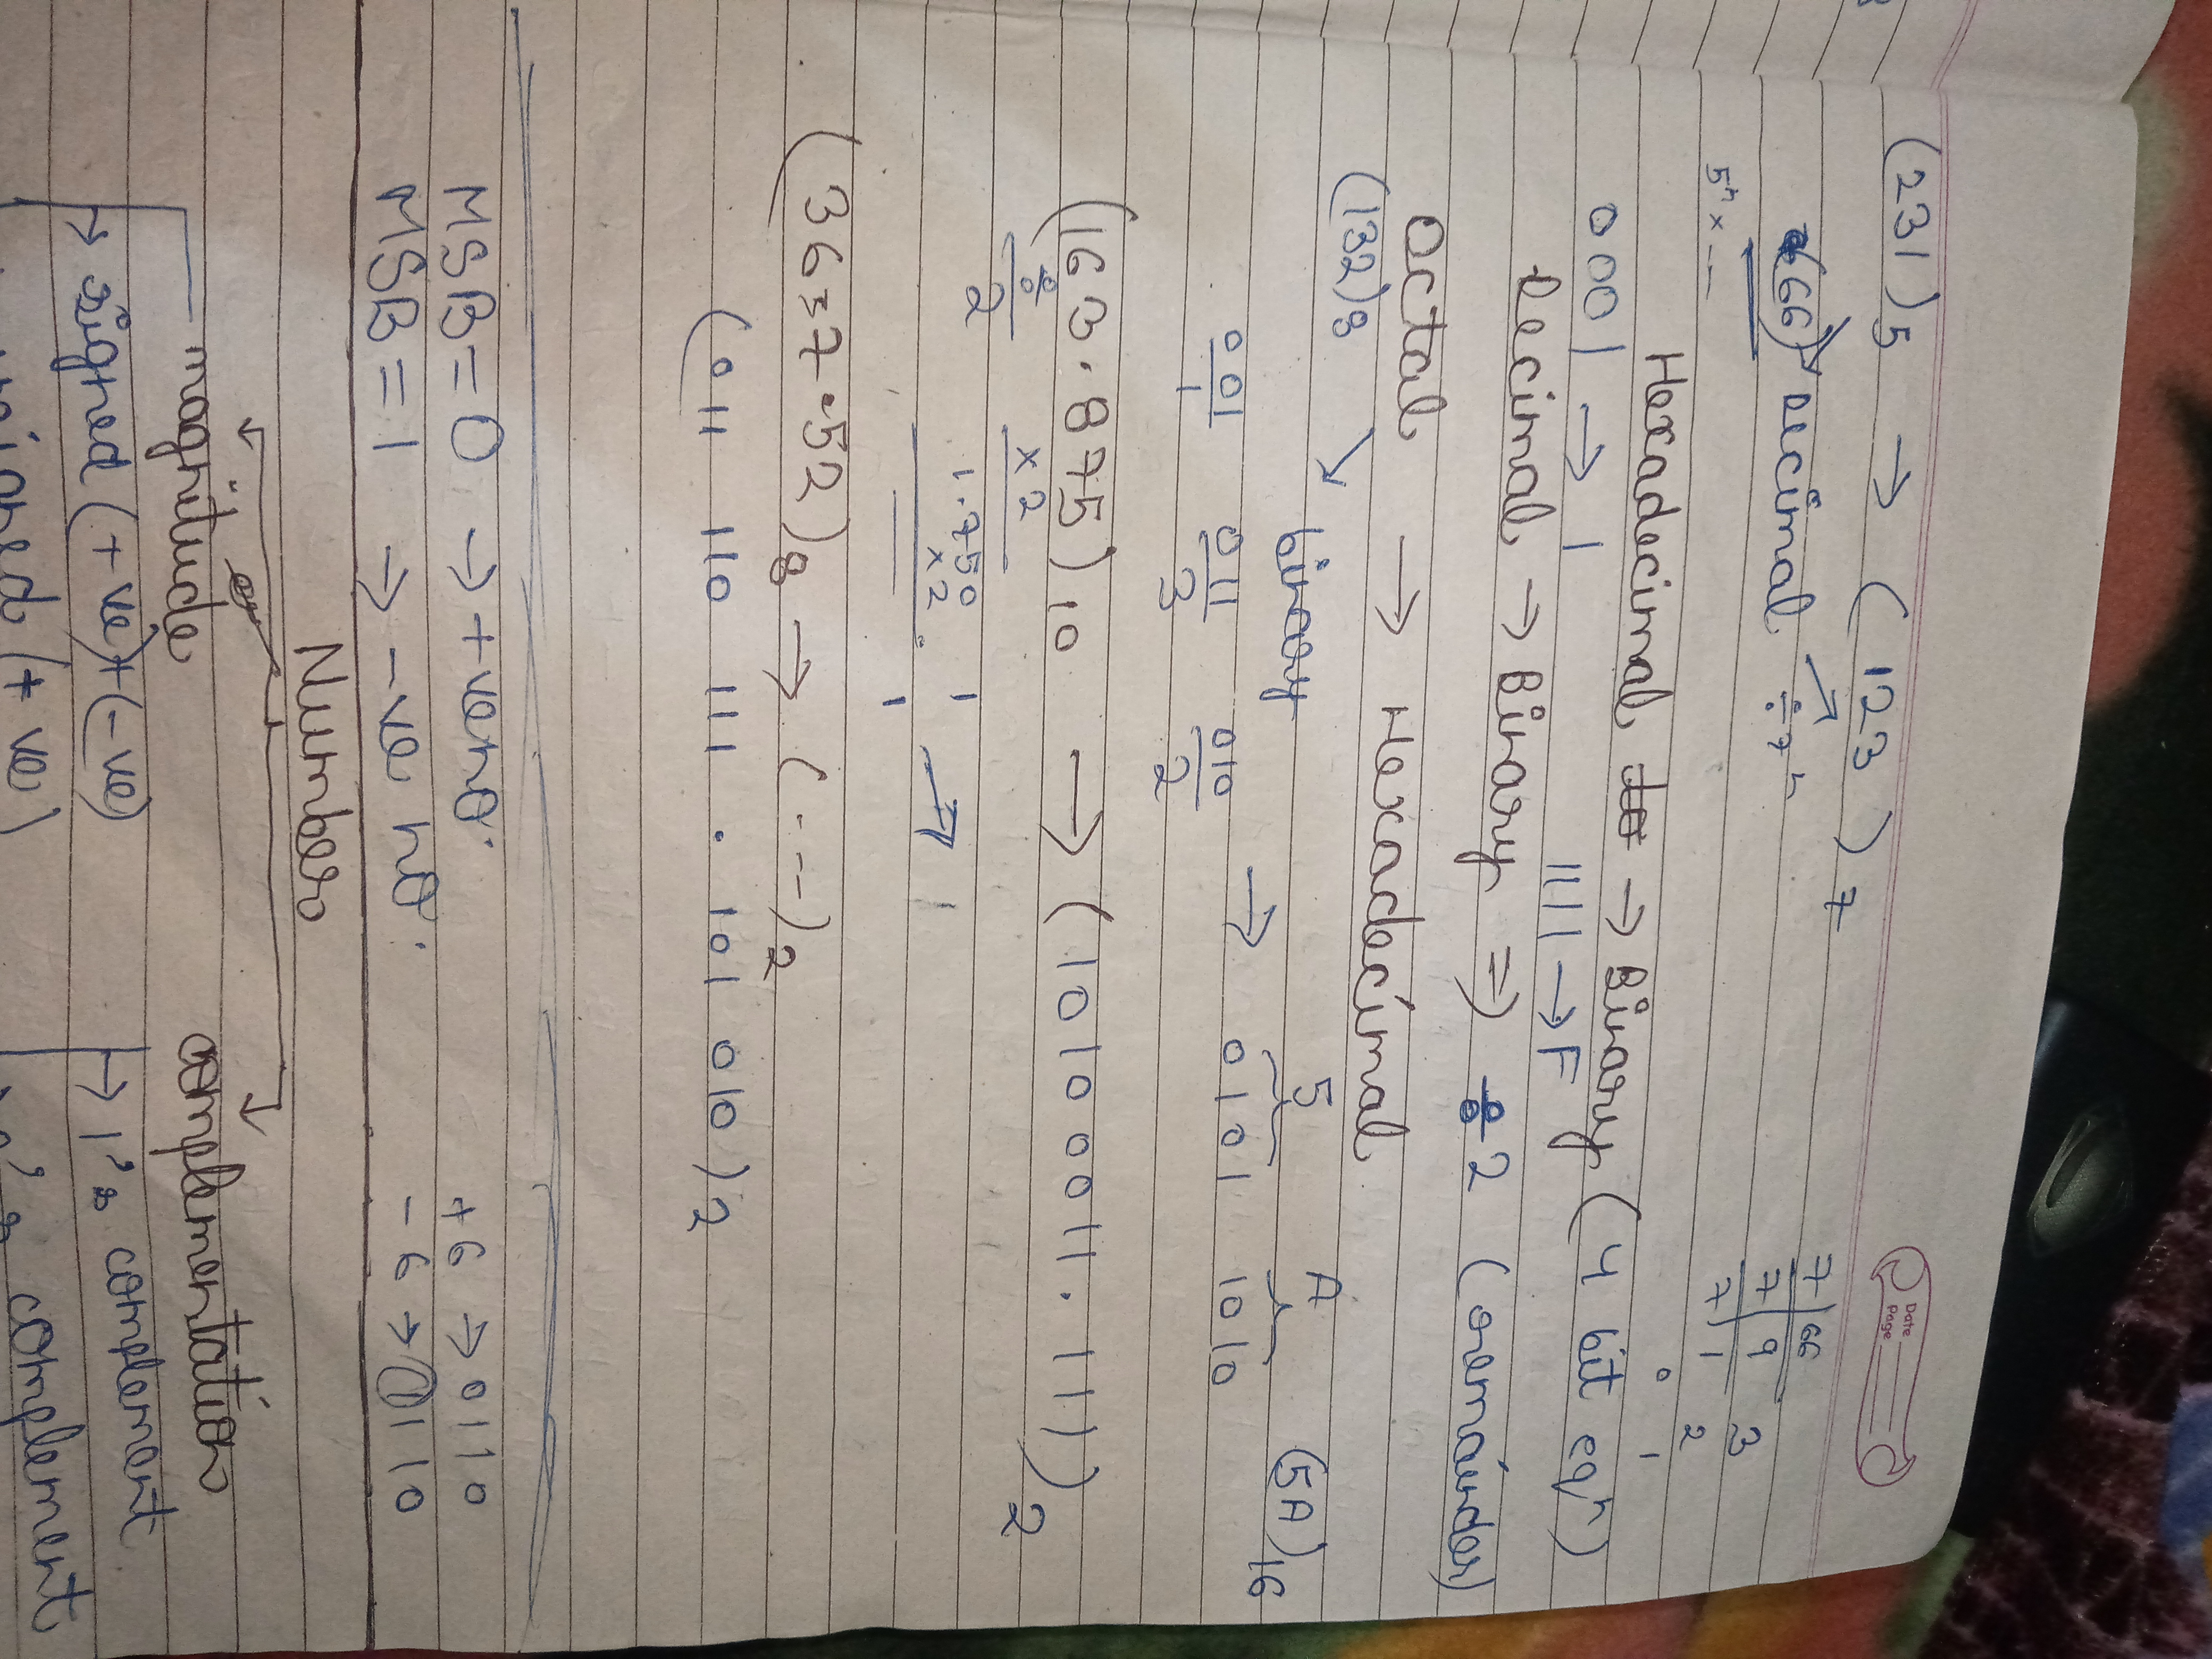 Date
Page
(231)5 → (123)7
(66) decimal ÷7ⁿ
5ⁿ x --
7 | 66
7 | 9 3
7 | 1 2
0 1
Hexadecimal → Binary (4 bit eqⁿ)
0001 → 1 1111 → F
Decimal → Binary ⇒ 2 (remainder)
Octal → Hexadecimal
(132)8 ↘ binary 5 A (5A)16
001 011 010 → 0101 1010
1 3 2
(163.875)10 → (10100011.111)2
÷ 2 x2
1.750 1
x2 1
(3657.52)8 → (---)2
(011 110 111 . 101 010)2
MSB=0 → +ve no. +6 → 0110
MSB=1 → -ve no. -6 → 1110
Number
magnitude complementation
→ signed (+ve)+(-ve) → 1's complement
(+ ve) complement